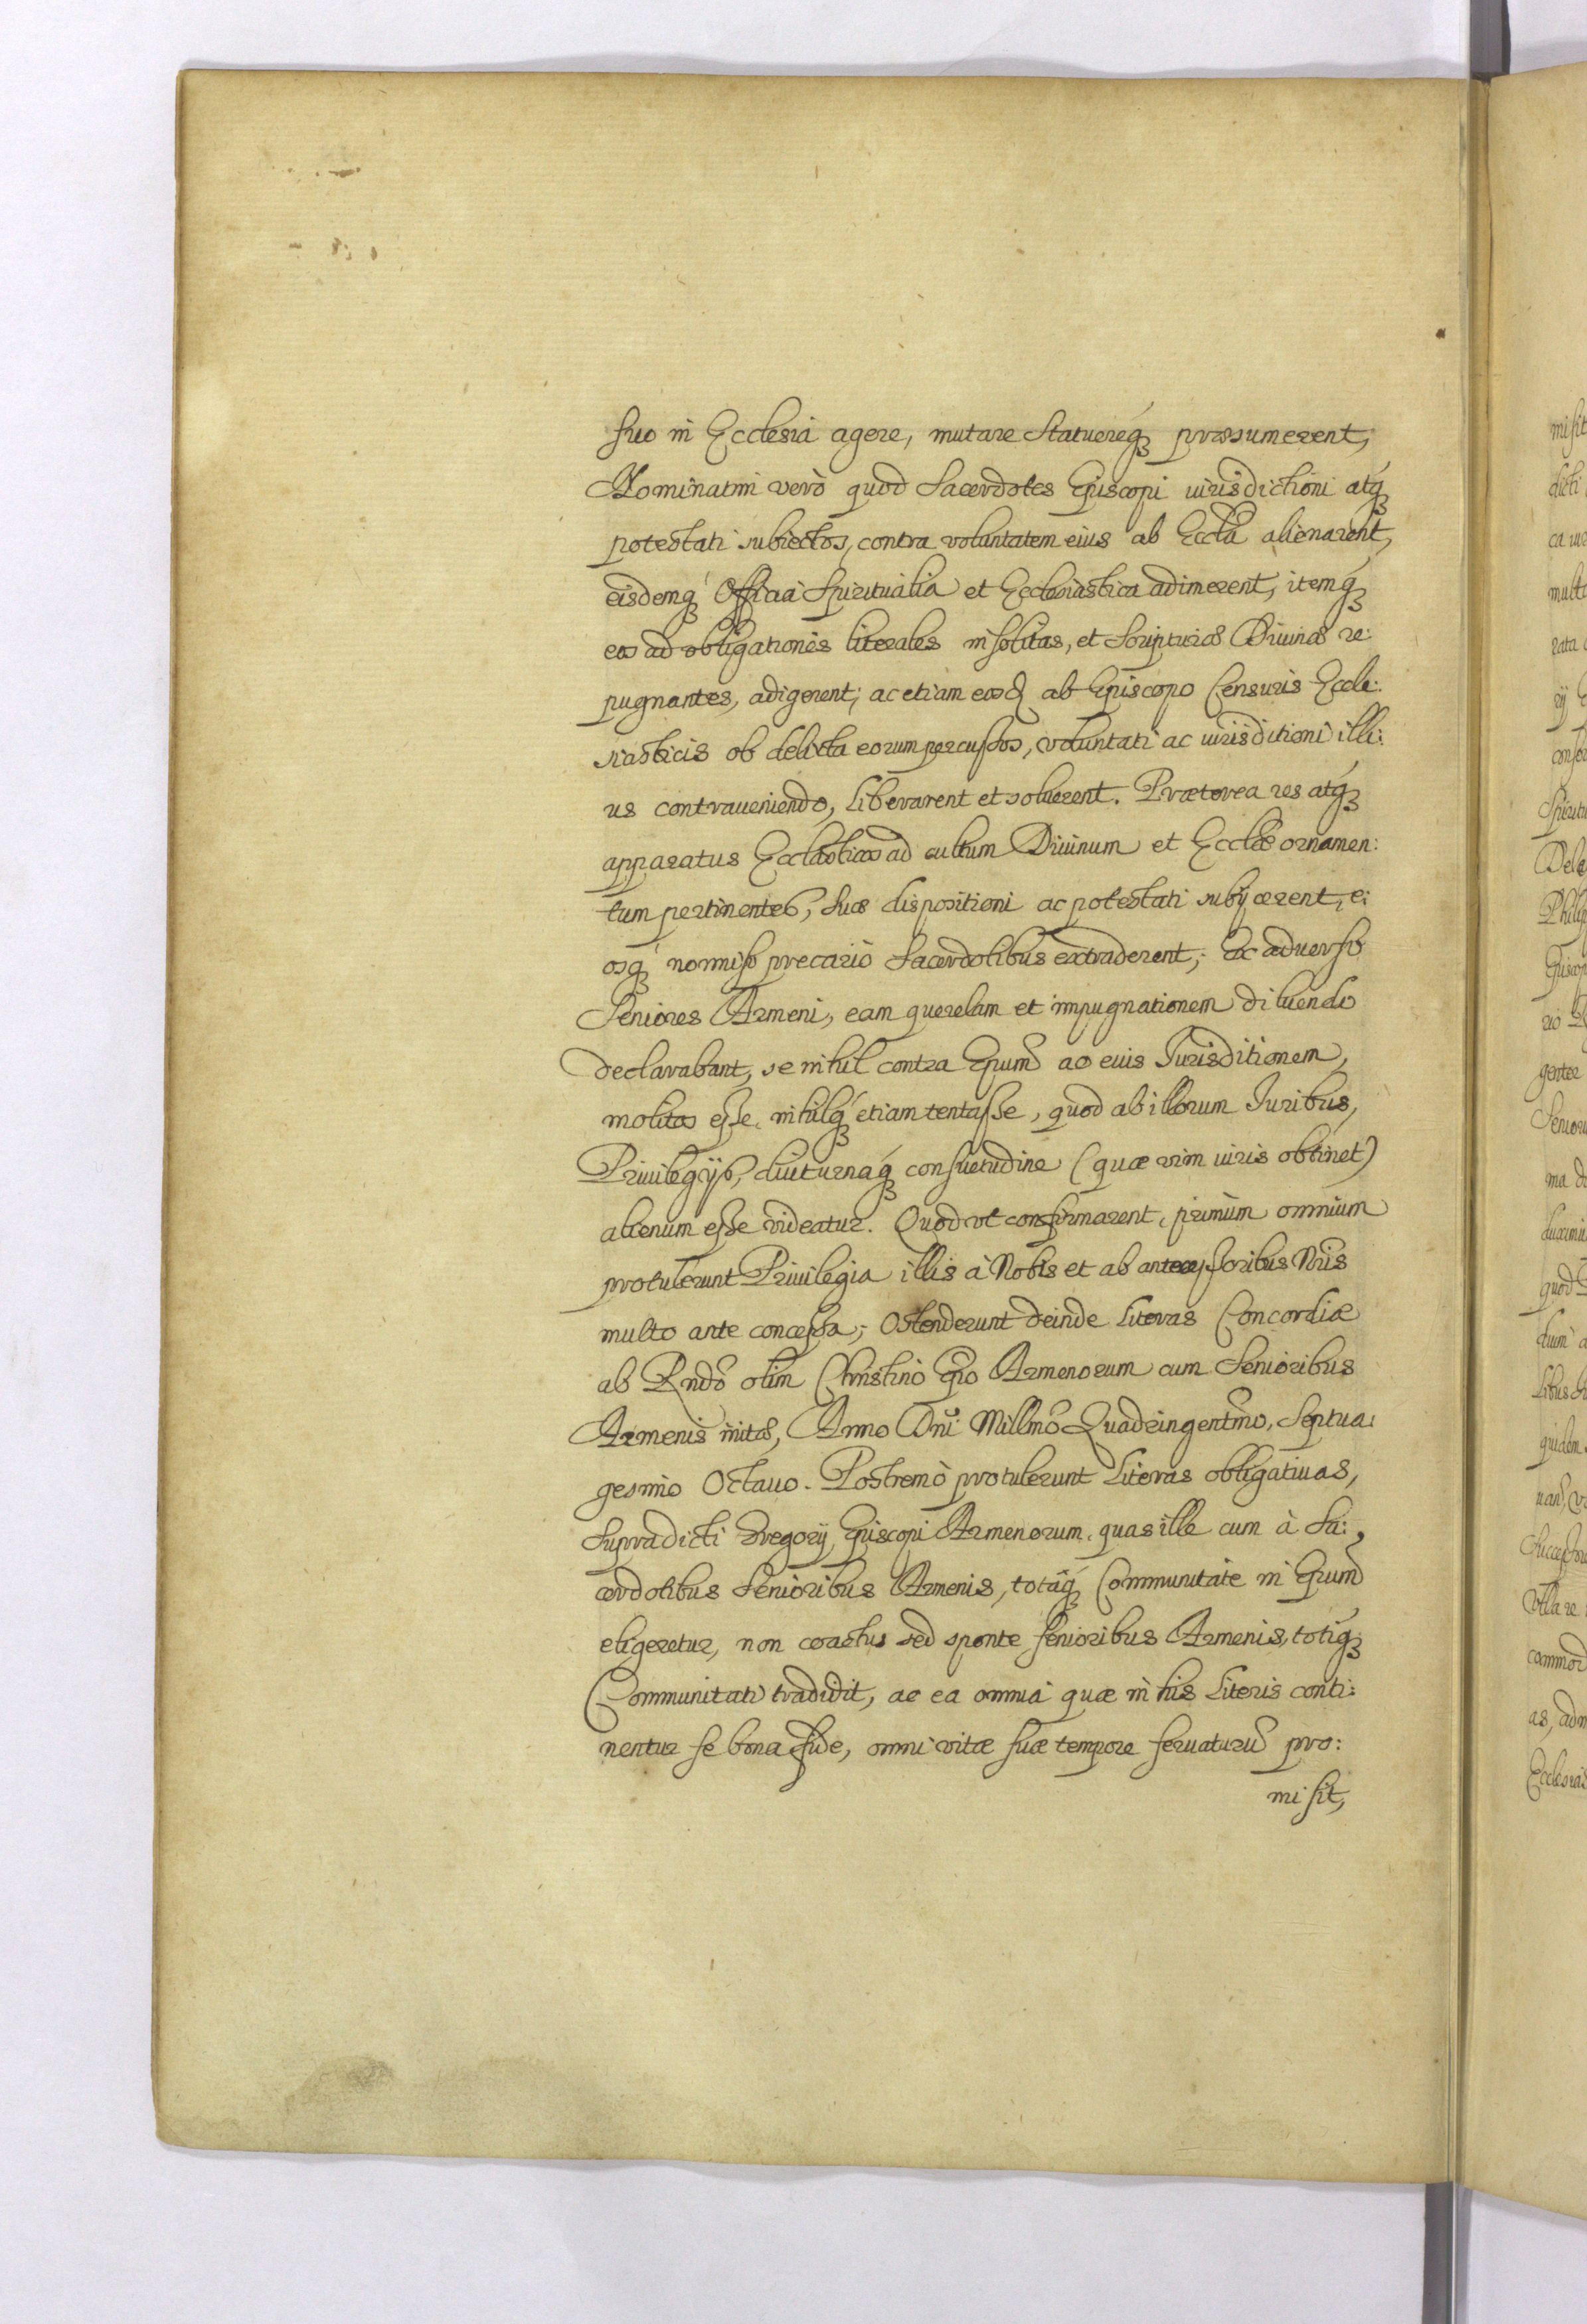 suo in Ecclesia agere, mutare Statuereq́ue præsumerent,
Nominatim verò quod Sacerdotes Episcopi iurisdictioni atq́ue
potestati subiectos, contra voluntatem eius ab Eccla alienarent,
eisdemq́ue Officia Spiritualia et Ecclesiastica adimerent, itemq́ue
eos ad obligationes literales insolitas, et Scripturas Diuinas re:
pugnantes, adigerent; ac etiam eosd ab Episcopo Censuris Eccle:
siasticis ob delicta eorum percussos, voluntati ac iurisditioni illi:
us contraueniendo, liberarent et soluerent. Prætorea res atq́ue
apparatus Ecclasticos ad cultum Diuinum et Ecclæ ornamen:
tum pertinentes, suæ dispositioni ac potestati subijcerent, e:
osq́ue nonnisi precariò Sacerdotibus extraderent; Ex aduerso
Seniores Armeni, eam querelam et impugnationem diluendo
declarabant, se nihil contra Epum ac eius Jurisditionem,
molitos esse, nihilq́ue etiam tentasse, quod ab illorum Juribus,
Priuilegijs, diuturnaq́ue consuetudine (quæ vim iuris obtinet)
alienum esse videatur. Quod vt confirmarent, primùm omnium
protulerunt Priuilegia illis à Nobis et ab antecessoribus Nris
multo ante concessa; Ostenderunt deinde Literas Concordiæ
ab Rndo olim Christino Epo Armenorum cum Senioribus
Armenis initas, Anno Dni Millmo Quadringentmo, Septua:
gesimo Octauo. Postremò protulerunt Literas obligatiuas,
supradicti Gregorij Episcopi Armenorum, quas ille cum à Sa:
cerdotibus Senioribus Armenis, totaq́ue Communitate in Epum
eligeretur, non coactus sed sponte senioribus Armenis, totiq́ue
Communitati tradidit, ac ea omnia quæ in his Literis conti:
nentur se bona fide, omni vitæ suæ tempore seruaturu pro:
misit,